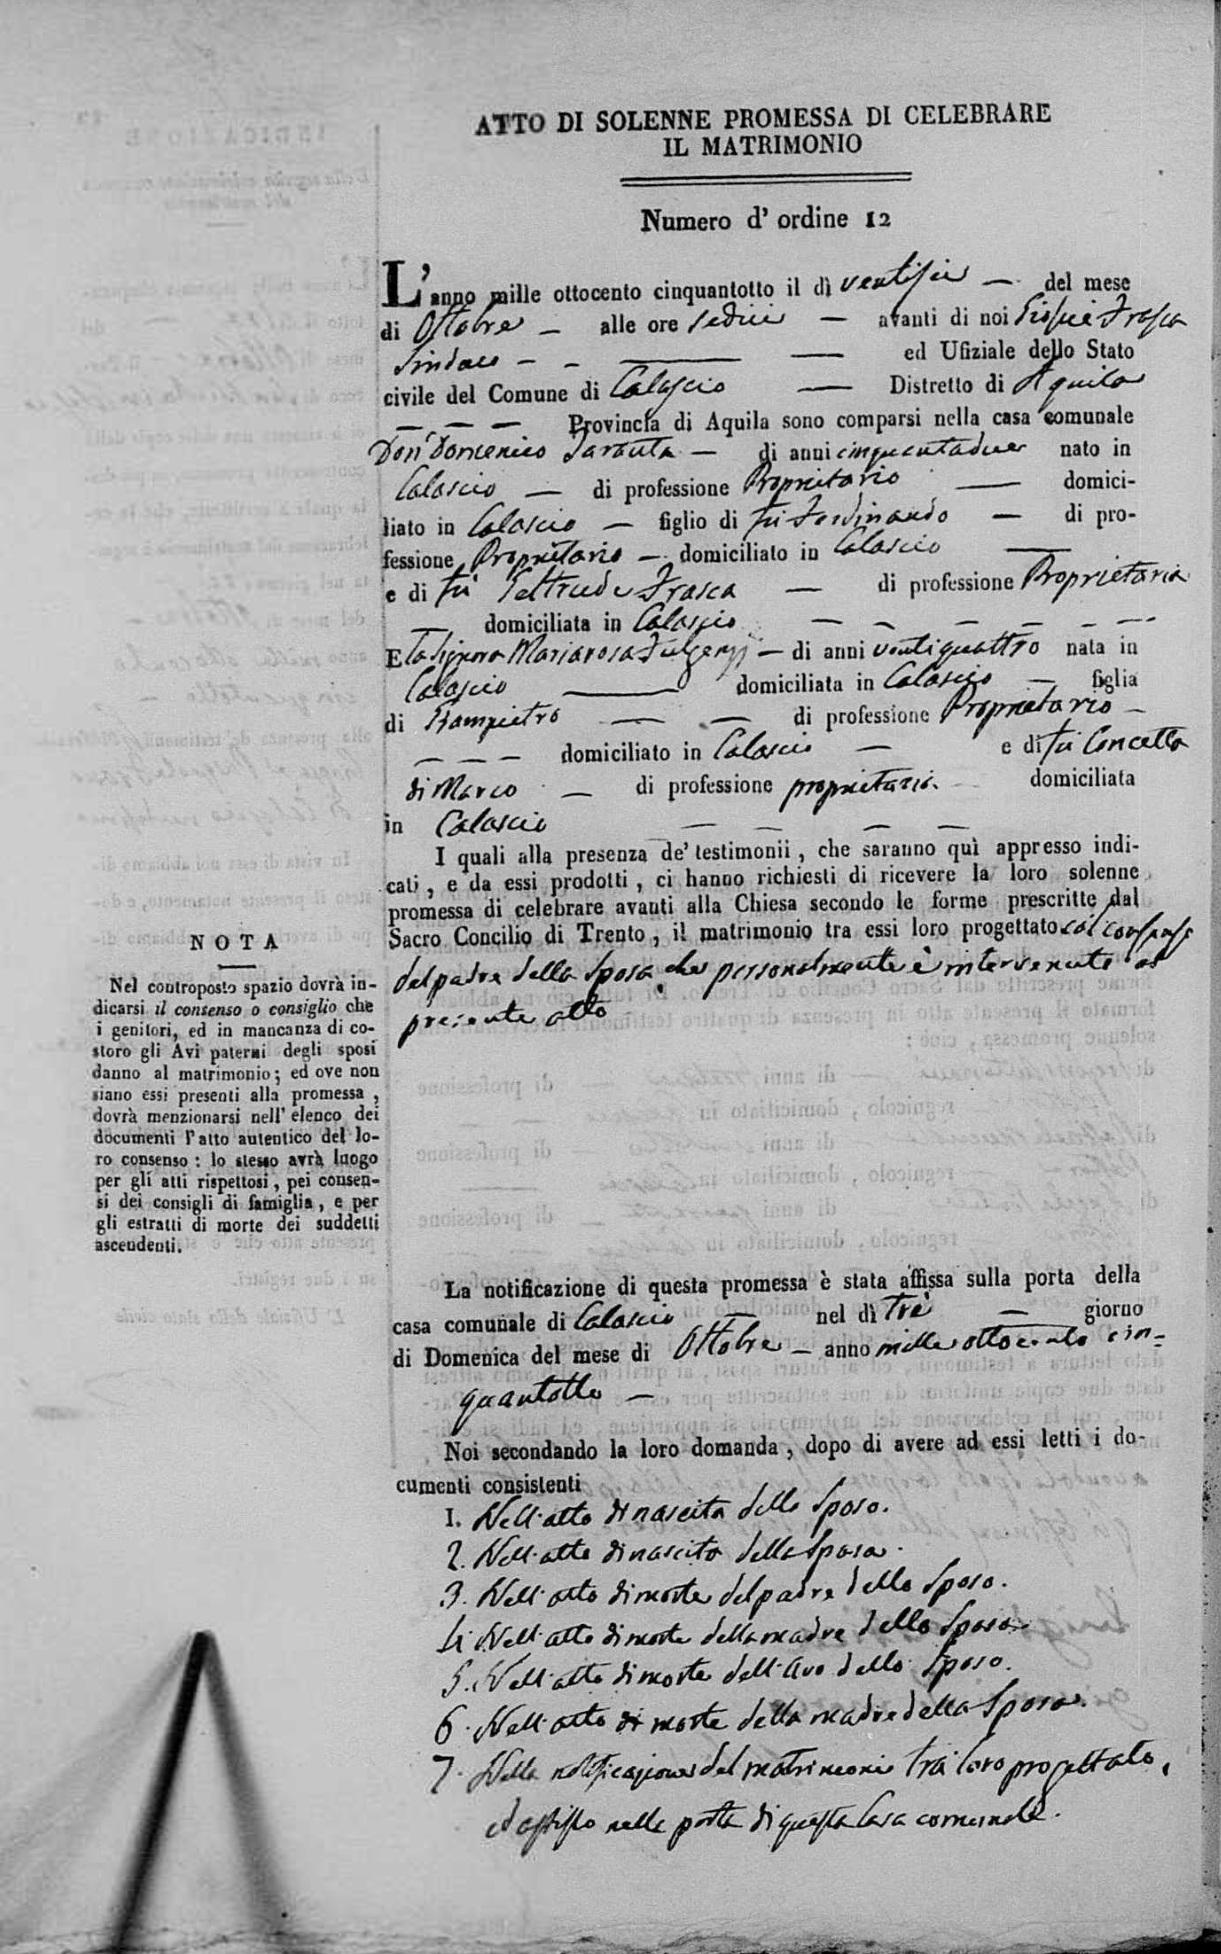 ATTO DI SOLENNE PROMESSA DI CELEBRARE
IL MATRIMONIO
Numero d' ordine 12
L'anno mille ottocento cinquantotto il dì ventisei — del mese
di Ottobre — alle ore sedici — avanti di noi Giosuè Frasca
Sindaco — — — — ed Ufiziale dello Stato
civile del Comune di Calascio — Distretto di Aquila
— — — Provincia di Aquila sono comparsi nella casa comunale
Don Domenico Taranta — di anni cinquantadue nato in
Calascio — di professione Proprietario — domici-
liato in Calascio — figlio di fù Ferdinando — di pro-
fessione Proprietario — domiciliato in Calascio —
e di fù Geltrude Frasca — di professione Proprietaria
— domiciliata in Calascio — — — — — —
E la Signora Mariarosa Fulgenzj — di anni ventiquattro nata in
Calascio — domiciliata in Calascio — figlia
di Giampietro — — di professione Proprietario —
— — — domiciliato in Calascio — e di fù Concetta
di Marco — di professione proprietaria domiciliata
in Calascio — — — —
I quali alla presenza de' testimonii, che saranno quì appresso indi-
cati, e da essi prodotti, ci hanno richiesti di ricevere la loro solenne
promessa di celebrare avanti alla Chiesa secondo le forme prescritte dal
Sacro Concilio di Trento, il matrimonio tra essi loro progettato col consenso
del padre della Sposa che personalmente è intervenuto al
presente atto
NOTA
Nel controposto spazio dovrà in-
dicarsi il consenso o consiglio che
i genitori, ed in mancanza di co-
storo gli Avi paterni degli sposi
danno al matrimonio; ed ove non
siano essi presenti alla promessa,
dovrà menzionarsi nell' elenco dei
documenti l'atto autentico del lo-
ro consenso: lo stesso avrà luogo
per gli atti rispettosi, pei consen-
si dei consigli di famiglia, e per
gli estratti di morte dei suddetti
ascendenti.
La notificazione di questa promessa è stata affissa sulla porta della
casa comunale di Calascio — nel dì trè — giorno
di Domenica del mese di Ottobre — anno mille ottocento cin=
quantotto —
Noi secondando la loro domanda, dopo di avere ad essi letti i do-
cumenti consistenti
1. Nell'atto di nascita dello Sposo.
2. Nell'atto di nascita della Sposa.
3. Nell'atto di morte del padre dello Sposo.
4. Nell'atto di morte della madre dello Sposo.
5. Nell'atto di morte dell'Avo dello Sposo.
6. Nell'atto di morte della madre della Sposa.
7. Nella notificazione del matrimonio tra loro progettato,
ed affisso nella porta di questa Casa comunale.